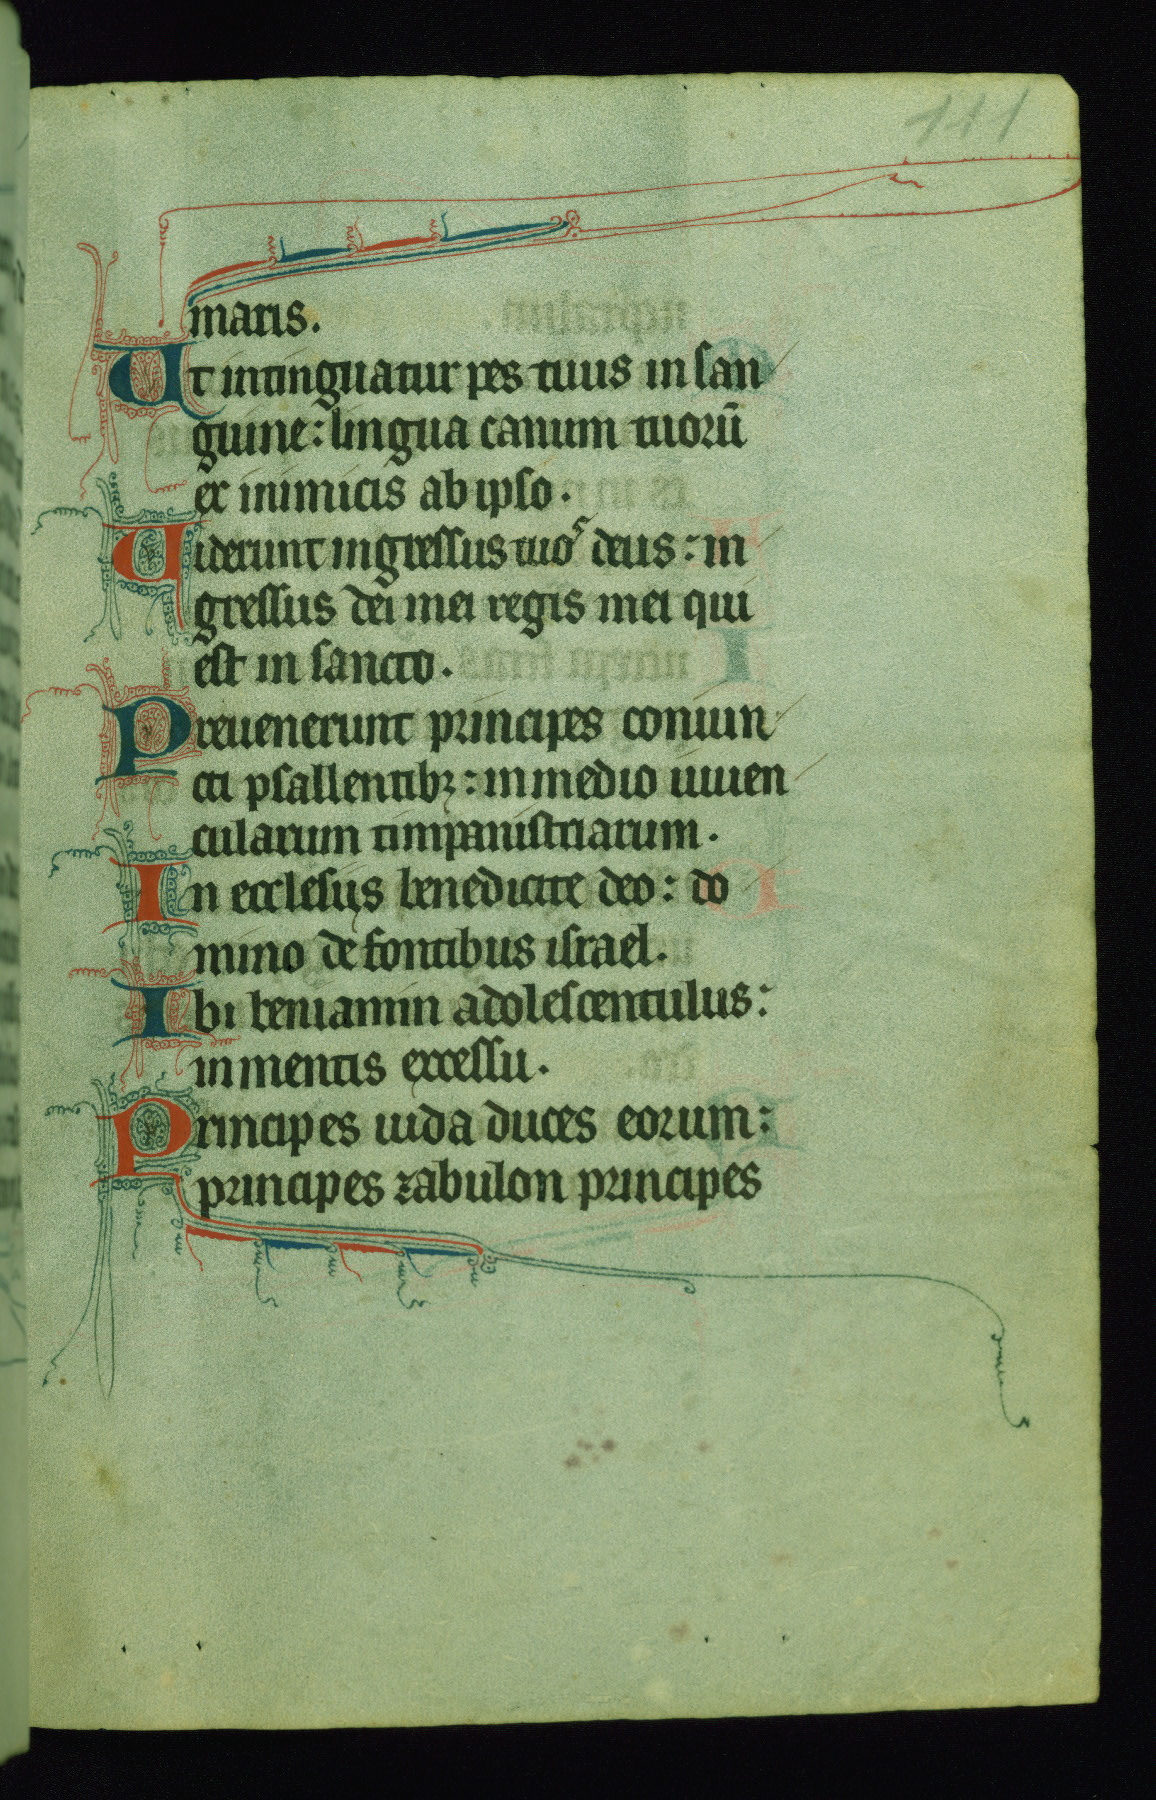 111
maris.
Ut intinguatur pes tuus in san
guine: lingua canum tuorū
ex inimicis ab ipso.
Uiderunt ingressus tuoˢ deus: in
gressus dei mei regis mei qui
est in sancto.
Preuenerunt principes coniun
cti psallentibꝫ: in medio iuuen
cularum timpanistriarum.
In ecclesiis benedicite deo: do
mino de fontibus israel.
Ibi beniamin adolescentulus:
in mentis excessu.
Principes iuda duces eorum:
principes zabulon principes